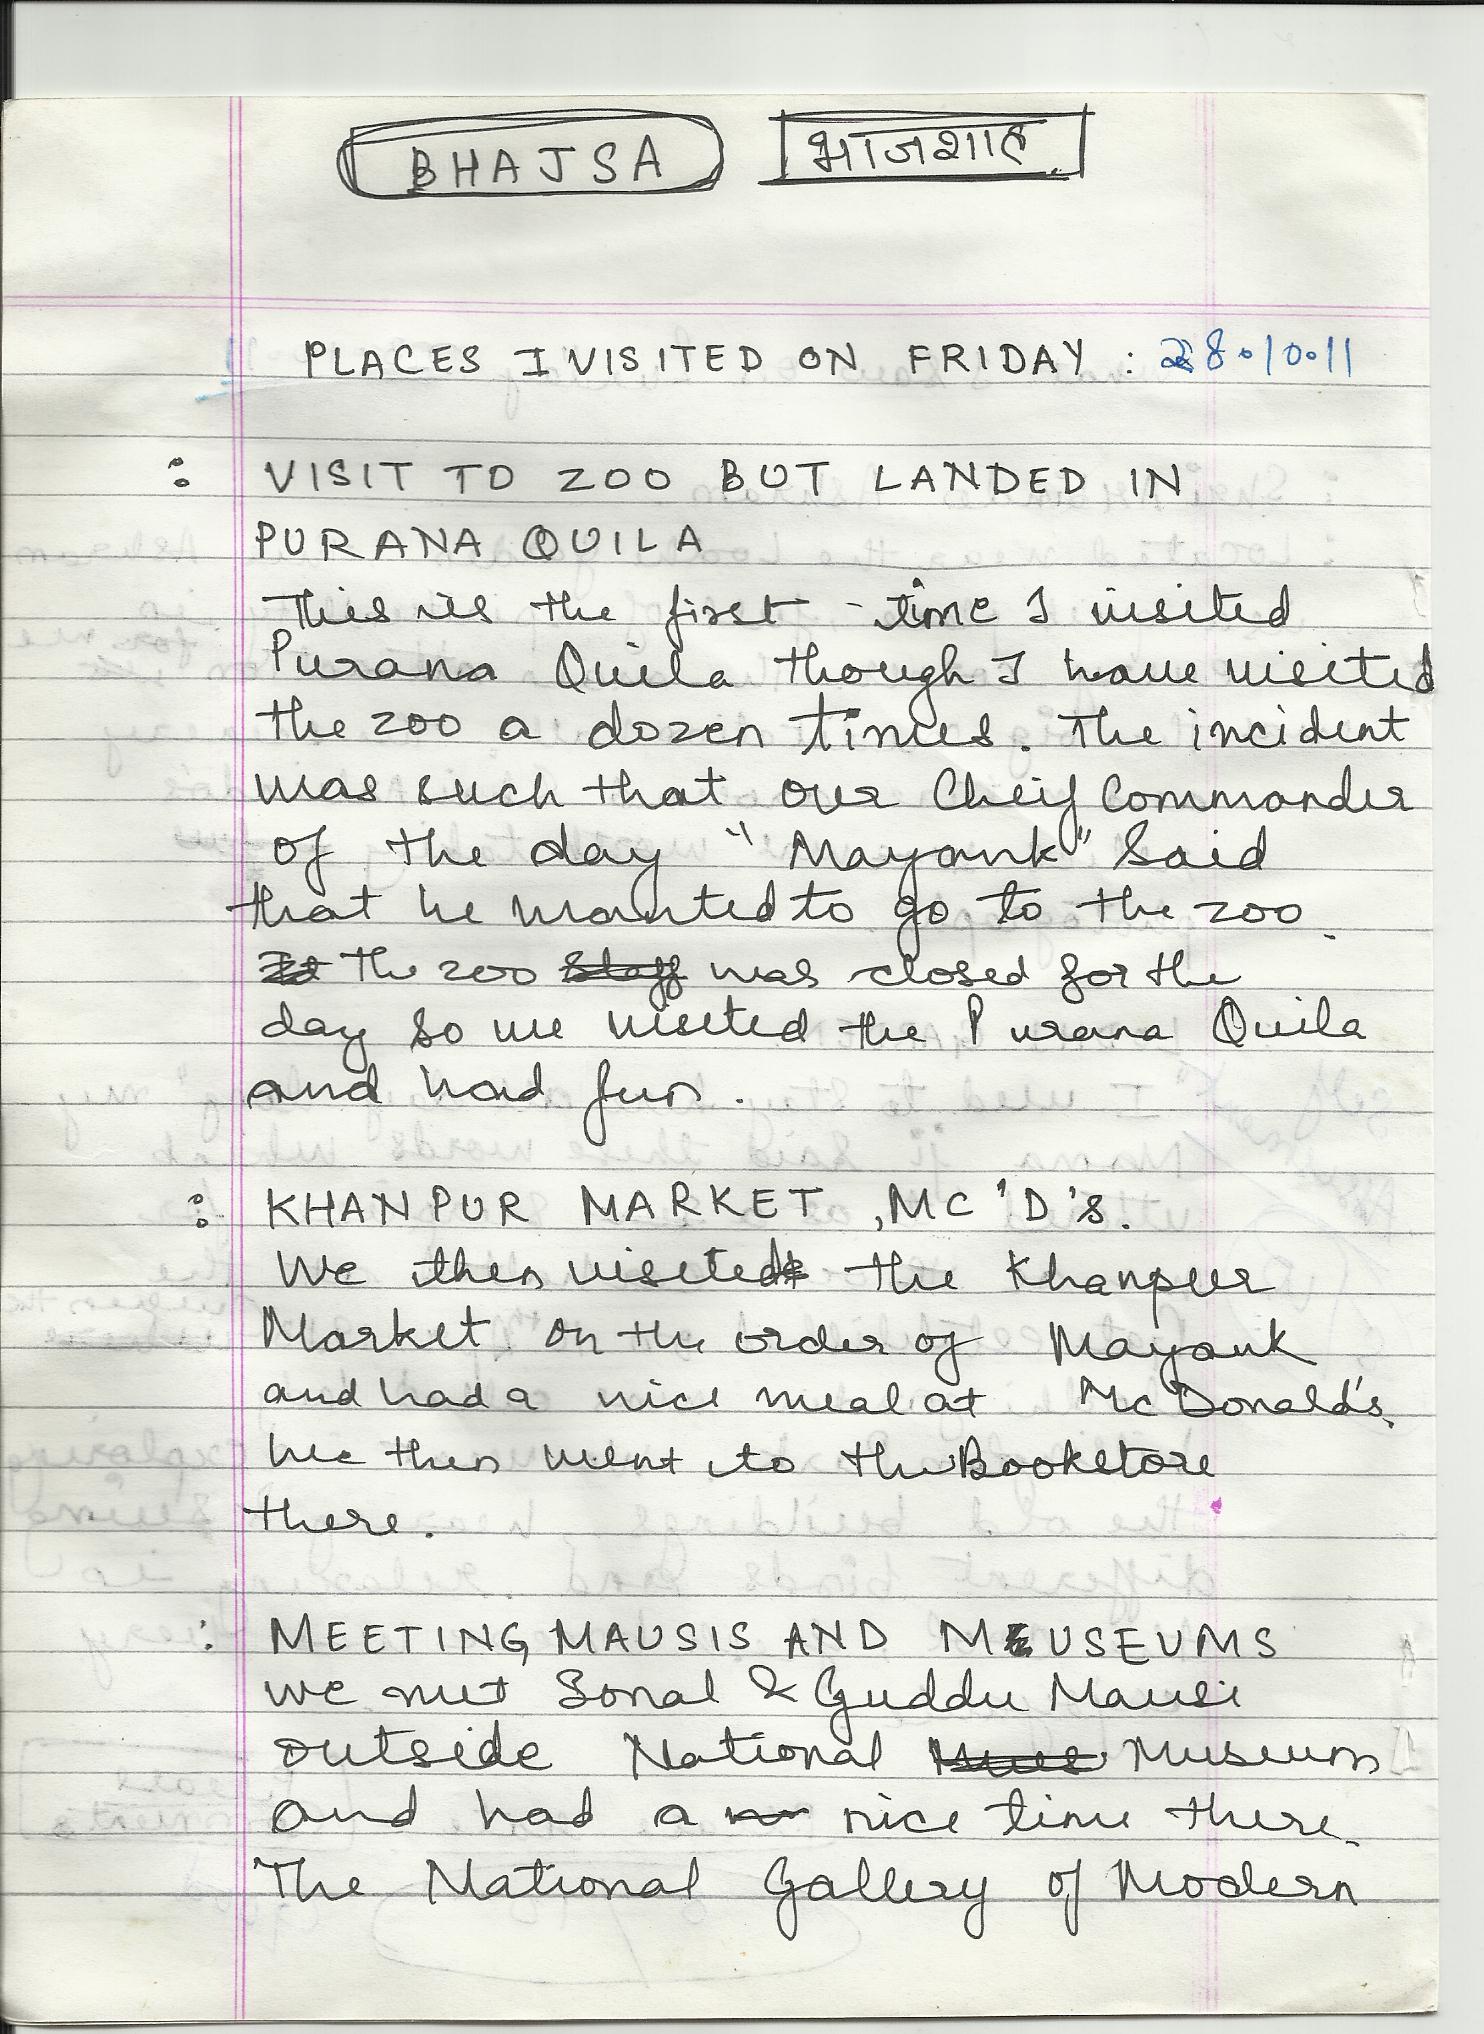 BHAJSA भाजशाह
PLACES I VISITED ON FRIDAY : 28.10.11
: VISIT TO ZOO BUT LANDED IN
PURANA QUILA
This is the first time I visited
Purana Quila though I have visited
the zoo a dozen times. The incident
was such that our Cheif Commander
of the day "Mayank" Said
that he wanted to go to the zoo.
The zoo was closed for the
day so we visited the Purana Quila
and had fun.
: KHANPUR MARKET, MC'D's.
We then visited the Khanpur
Market on the order of Mayank
and had a nice meal at McDonald's.
We then went to the Bookstore
there.
: MEETING MAUSIS AND MUSEUMS
We met Sonal & Guddu Mausi
outside National Museum
and had a nice time there.
The National Gallery of Modern